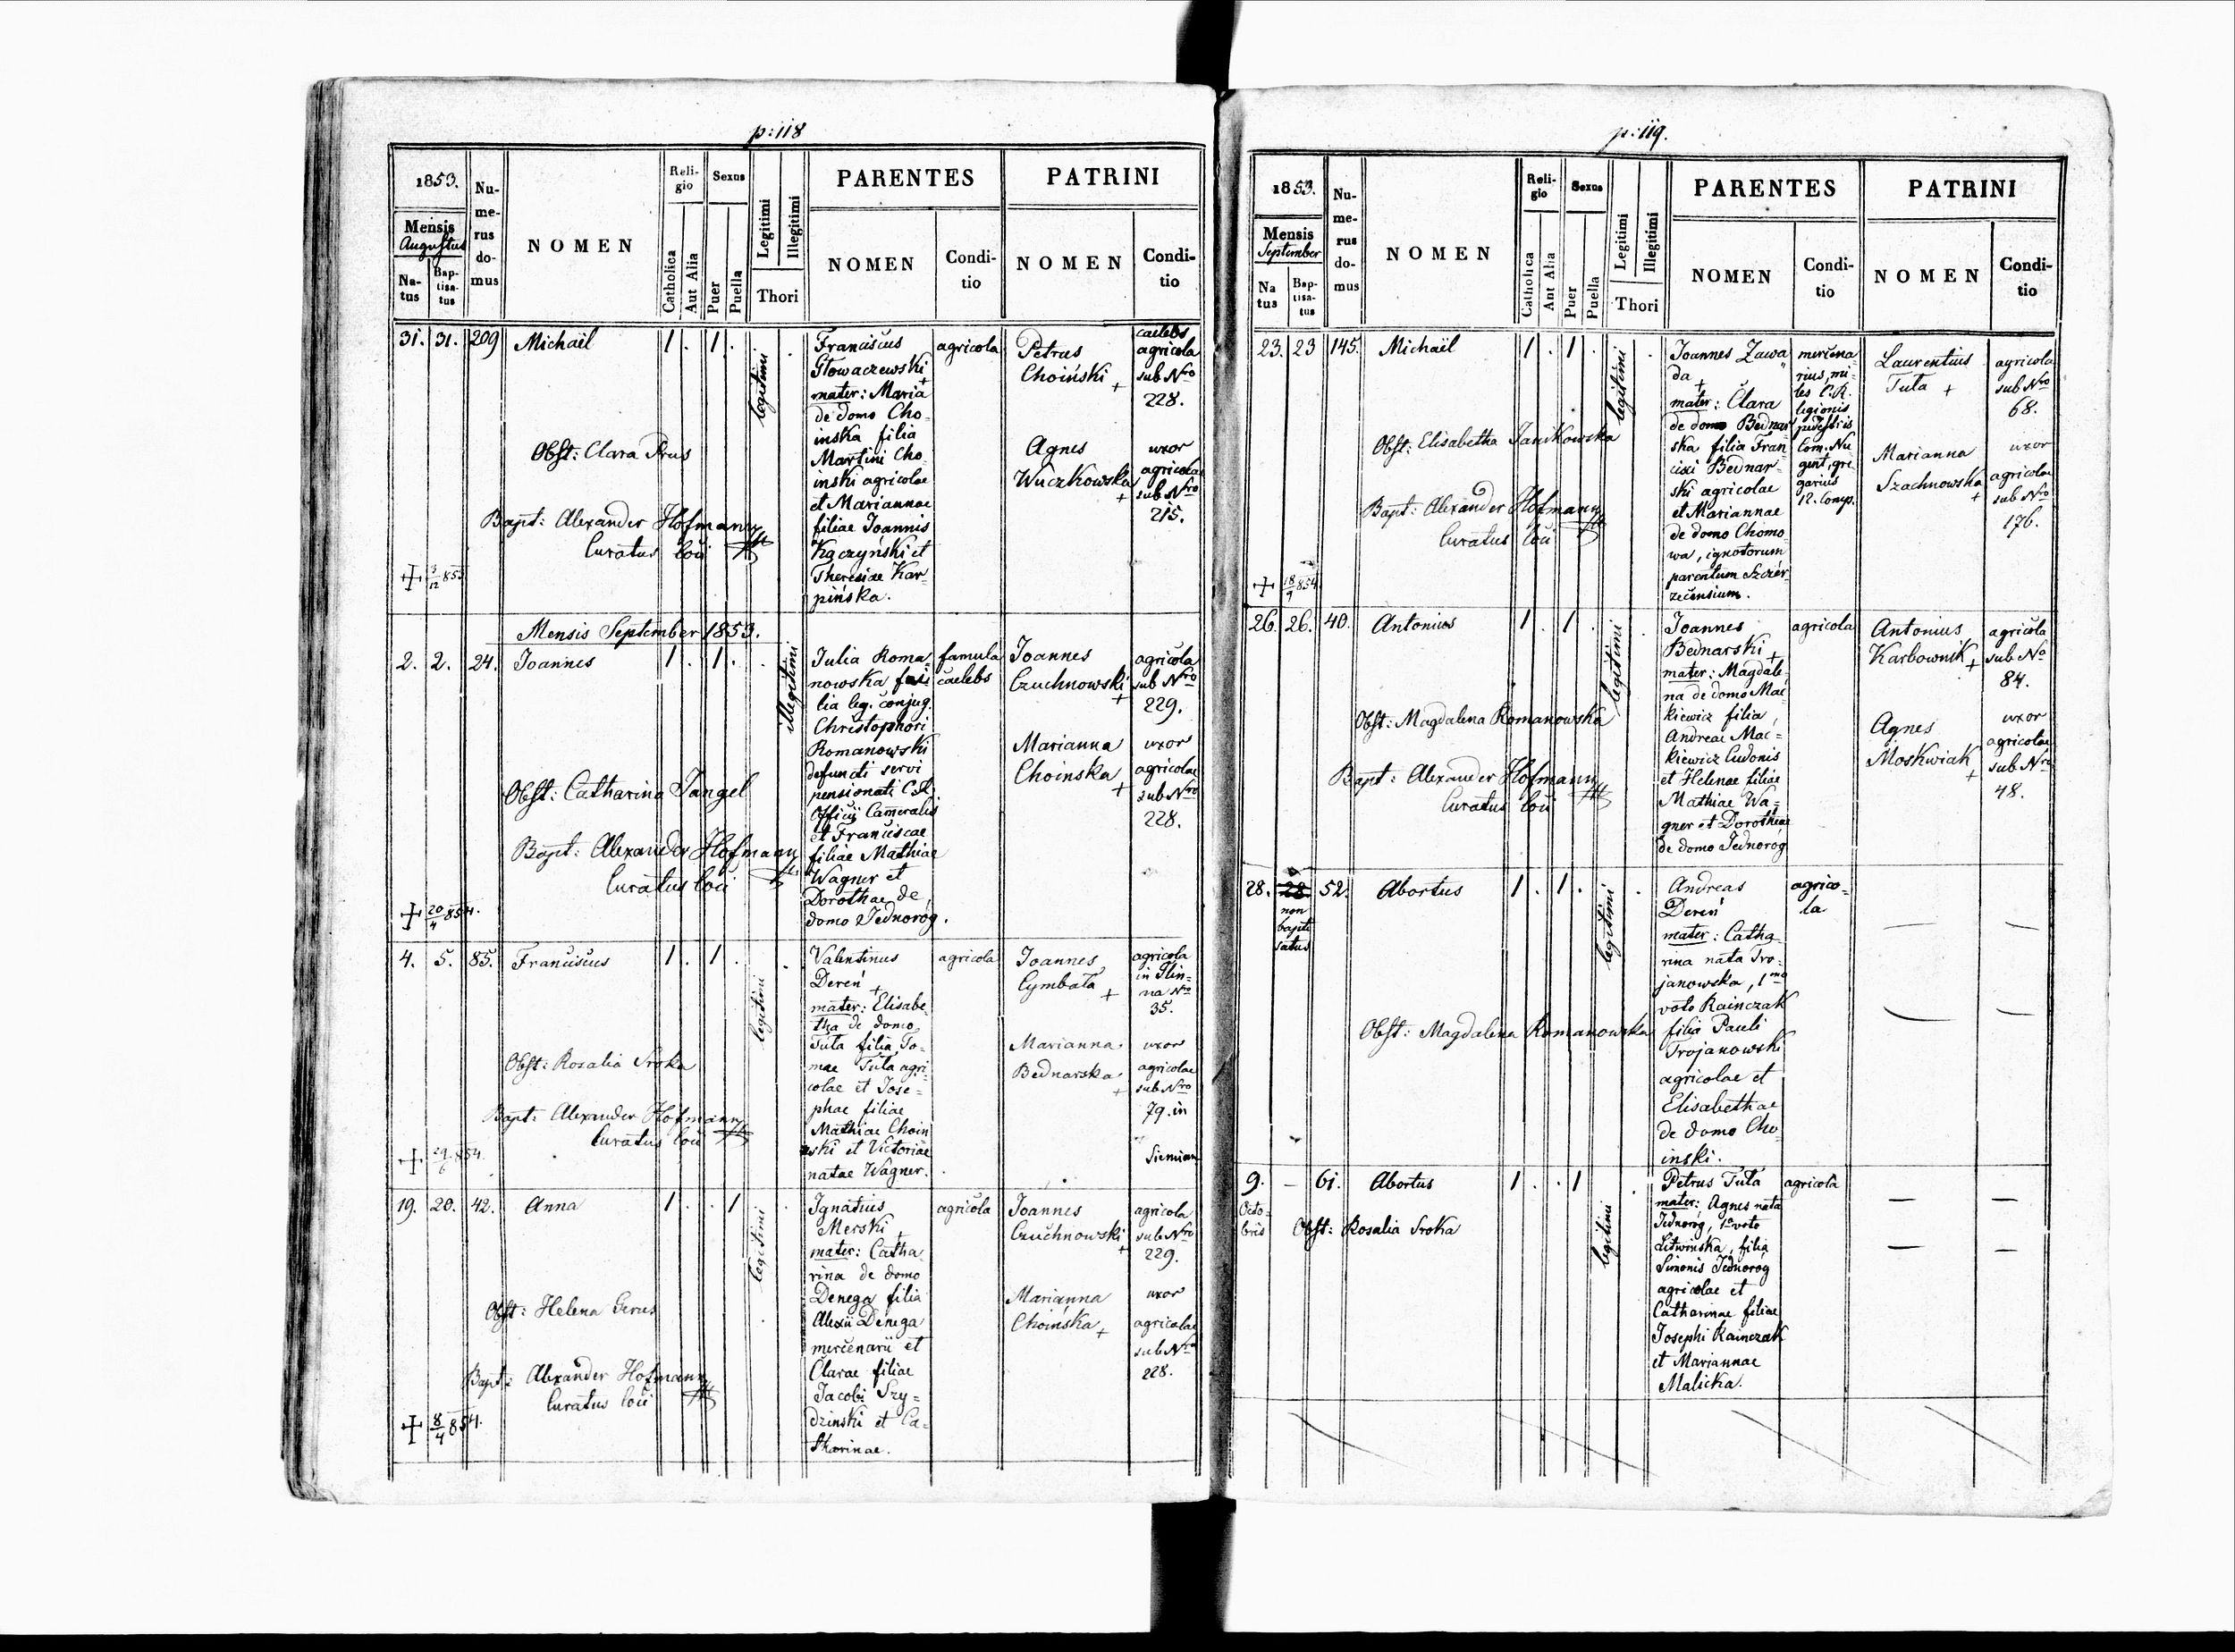 p: 118
1853.
Mensis
Augustus
Na-
tus
Bap-
tisa-
tus
Nu-
me-
rus
do-
mus
NOMEN
Reli-
gio
Catholica
Aut Alia
Sexus
Puer
Puella
Legitimi
Illegitimi
Thori
PARENTES
NOMEN
Condi-
tio
PATRINI
NOMEN
Condi-
tio
31. 31. 209 Michaël 1 . 1 .
legitimi
Obst: Clara Prus
Bapt: Alexander Hofmann
Curatus loci
Franciscus
Głowaczewski
mater: Maria
de domo Cho-
inska filia
Martini Cho-
inski agricolae
et Mariannae
filiae Joannis
Kączyński et
Theresiae Kar-
pińska.
agricola
Petrus
Choiński +
caelebs
agricola
sub Nro
228.
Agnes
Wuczkowska +
uxor
agricolae
sub Nro
215.
Mensis September 1853.
2. 2. 24. Joannes 1 . 1 .
illegitimi
Obst: Catharina Jangel
Bapt: Alexander Hofmann
Curatus loci
+ 20/4 854.
Julia Roma-
nowska fili
lia leg. conjug.
Christophori
Romanowski
defuncti servi
pensionati C.R.
Officii Cameralis
et Franciscae
filiae Mathiae
Wagner et
Dorothae de
domo Jednoróg.
famula
caelebs
Joannes
Czuchnowski +
agricola
sub Nro
229.
Marianna
Choinska +
uxor
agricolae
sub Nro
228.
4. 5. 85. Franciscus 1 . 1 .
legitimi
Obst: Rosalia Sroka
Bapt: Alexander Hofmann
Curatus loci
Valentinus
Dereń +
mater: Elisabe-
tha de domo
Tuta filia To-
mae Tuta agri-
colae et Jose-
phae filiae
Mathiae Choin
ski et Victoriae
natae Wagner.
agricola
Joannes
Cymbała +
agricola
in Glin-
na Nro
35.
Marianna
Bednarska +
uxor
agricolae
sub Nro
79. in
Siemian
19. 20. 42. Anna 1 . . 1
legitimi
Obst: Helena Gerus
Bapt: Alexander Hofmann
Curatus loci
+ 8/4 854.
Ignatius
Merski +
mater: Catha
rina de domo
Denega filia
Alexii Denega
mercenarii et
Clarae filiae
Jacobi Szy-
dzinski et Ca-
tharinae.
agricola
Joannes
Czuchnowski +
agricola
sub Nro
229.
Marianna
Choińska +
uxor
agricolae
sub Nro
228.
p: 119.
1853.
Mensis
September
Na
tus
Bap-
tisa-
tus
Nu-
me-
rus
do-
mus
NOMEN
Reli-
gio
Catholica
Ant Alia
Sexus
Puer
Puella
Legitimi
Illegitimi
Thori
PARENTES
NOMEN
Condi-
tio
PATRINI
NOMEN
Condi-
tio
23. 23 145. Michaël 1 . 1 .
legitimi
Obst: Elisabetha Janikowska
Bapt: Alexander Hofmann
Curatus loci
Joannes Zawa
da +
mater: Clara
de domo Bednar
ska filia Fran-
cisci Bednar-
ski agricolae
et Mariannae
de domo Chomo
wa, ignotorum
parentum Szczer
zecensium.
mercena
rius, mi-
les C.R.
legionis
pedestris
Com. Nu
gent, gre
garius
12. Comp.
Laurentius
Tuta +
agricola
sub Nro
68.
Marianna
Szachnowska +
uxor
agricolae
sub Nro
176.
26. 26. 40. Antonius 1 . 1 .
legitimi
Obst: Magdalena Romanowska
Bapt: Alexander Hofmann
Curatus loci
Joannes
Bednarski +
mater: Magdale-
na de domo Mac
kiewicz filia
Andreae Mac-
kiewicz Ludonis
et Helenae filiae
Mathiae Wa-
gner et Dorotheae
de domo Jednoróg
agricola
Antonius
Karbownik +
agricola
sub No
84.
Agnes
Moskwiak +
uxor
agricolae
sub Nro
48.
28. 28 52. Abortus 1 . 1 .
non
bapti
satus
legitimi
Obst: Magdalena Romanowska
Andreas
Dereń
mater: Catha
rina nata Tro-
janowska, 1mo
voto Rainczak
filia Pauli
Trojanowski
agricolae et
Elisabethae
de domo Cho
inski.
agrico-
la
9. – 61. Abortus 1 . . 1
Octo-
bris
legitimi
Obst: Rosalia Sroka
Petrus Tuta
mater: Agnes nata
Jednoróg, 1o voto
Litwinska, filia
Simonis Jednoróg
agricolae et
Catharinae filiae
Josephi Rainczak
et Mariannae
Malicka.
agricola